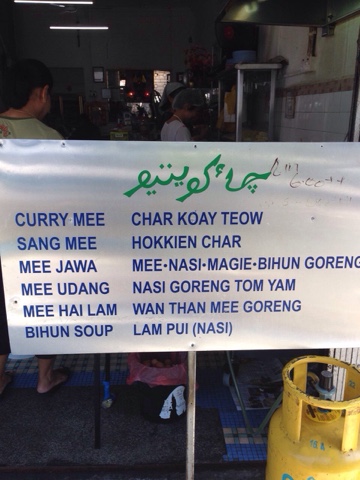 چاء کوينتيو
CURRY MEE CHAR KOAY TEOW
SANG MEE HOKKIEN CHAR
MEE JAWA MEE•NASI•MAGIE•BIHUN GORENG
MEE UDANG NASI GORENG TOM YAM
MEE HAI LAM WAN THAN MEE GORENG
BIHUN SOUP LAM PUI (NASI)